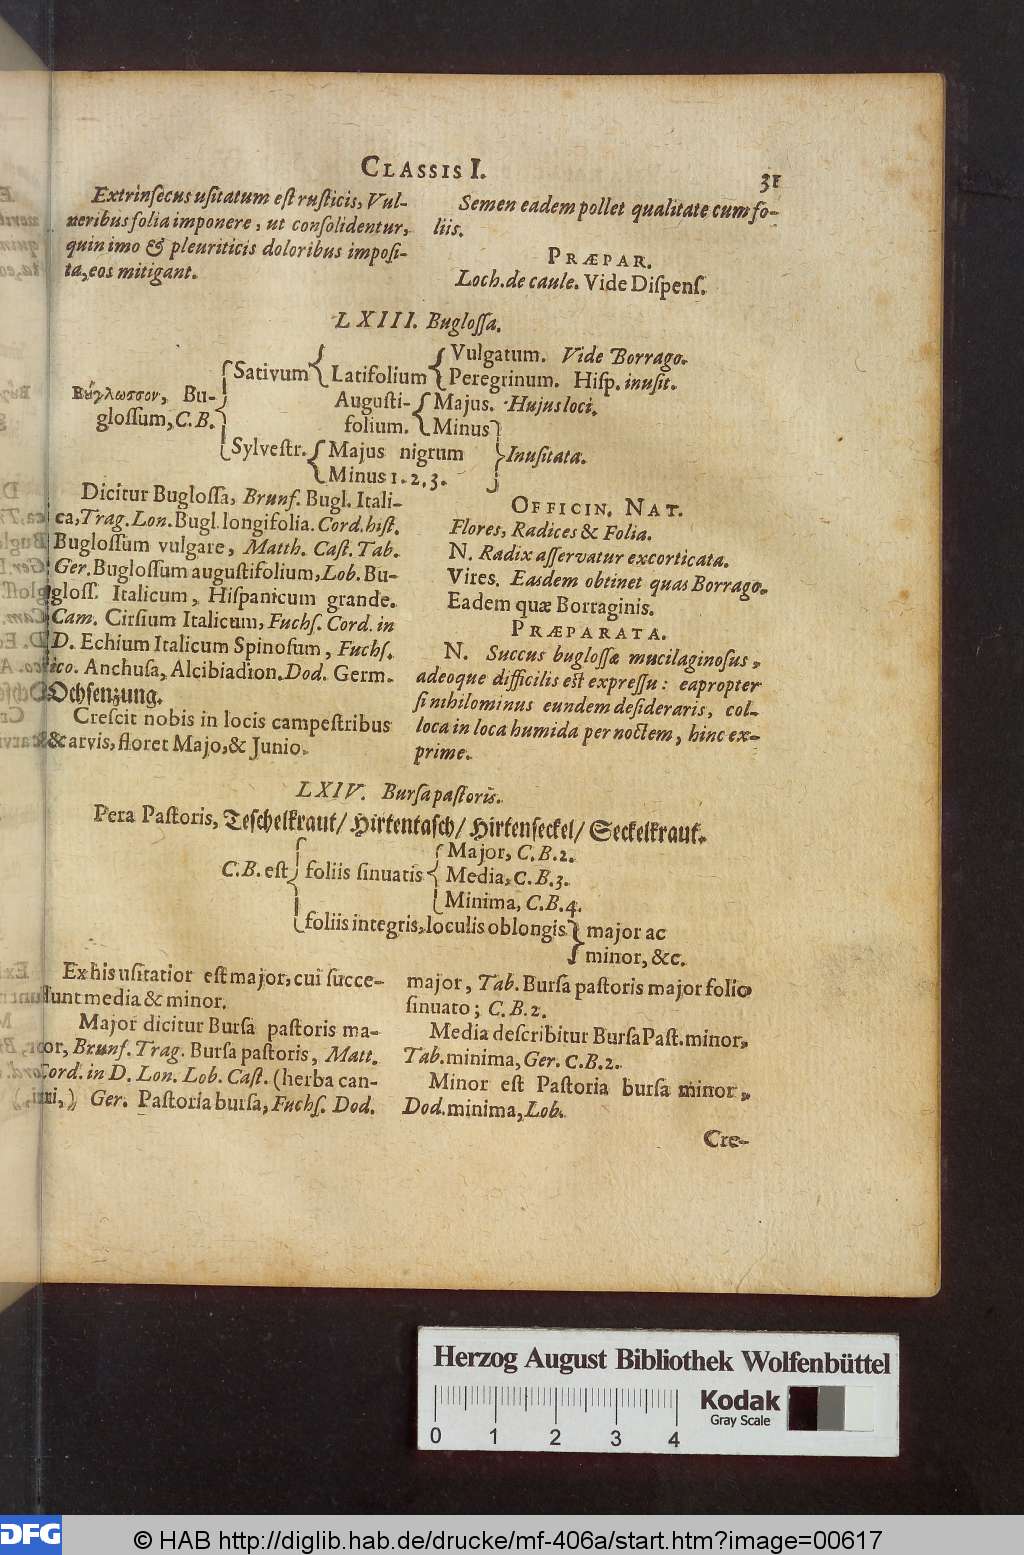 CLASSIS I.
31
Extrinsecus usitatum est rusticis, Vul-
neribus folia imponere, ut consolidentur,
quin imo & pleuriticis doloribus imposi-
ta, eos mitigant.
Semen eadem pollet qualitate cum fo-
liis.
PRÆPAR.
Loch. de caule. Vide Dispens.
LXIII. Buglossa.
Βύγλωσσον, Bu-
glossum, C.B.
Sativum
Latifolium
Vulgatum. Vide Borrago.
Peregrinum. Hisp. inusit.
Augusti-
folium.
Majus. Hujus loci.
Minus
Sylvestr.
Majus nigrum
Minus 1. 2. 3.
Inusitata.
Dicitur Buglossa, Brunf. Bugl. Itali-
ca, Trag. Lon. Bugl. longifolia. Cord. hist.
Buglossum vulgare, Matth. Cast. Tab.
Ger. Buglossum augustifolium, Lob. Bu-
gloss. Italicum, Hispanicum grande.
Cam. Cirsium Italicum, Fuchs. Cord. in
D. Echium Italicum Spinosum, Fuchs.
ico. Anchusa, Alcibiadion. Dod. Germ.
Ochsenzung.
Crescit nobis in locis campestribus
& arvis, floret Majo, & Junio.
OFFICIN. NAT.
Flores, Radices & Folia.
N. Radix asservatur excorticata.
Vires. Easdem obtinet quas Borrago.
Eadem quæ Borraginis.
PRÆPARATA.
N. Succus buglossæ mucilaginosus,
adeoque difficilis est expressu: eapropter
si nihilominus eundem desideraris, col-
loca in loca humida per noctem, hinc ex-
prime.
LXIV. Bursa pastoris.
Pera Pastoris, Teschelkraut/ Hirtentasch/ Hirtenseckel/ Seckelkraut.
C.B. est
foliis sinuatis
Major, C.B. 2.
Media, C.B. 3.
Minima, C.B. 4.
foliis integris, loculis oblongis
major ac
minor, &c.
Ex his usitatior est major, cui succe-
dunt media & minor.
Major dicitur Bursa pastoris ma-
jor, Brunf. Trag. Bursa pastoris, Matt.
Cord. in D. Lon. Lob. Cast. (herba can-
cri,) Ger. Pastoria bursa, Fuchs. Dod.
major, Tab. Bursa pastoris major folio
sinuato; C.B. 2.
Media describitur Bursa Past. minor,
Tab. minima, Ger. C.B. 2.
Minor est Pastoria bursa minor,
Dod. minima, Lob.
Cre-
Herzog August Bibliothek Wolfenbüttel
Kodak
Gray Scale
0 1 2 3 4
DFG
© HAB http://diglib.hab.de/drucke/mf-406a/start.htm?image=00617